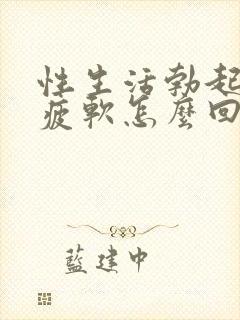 性生活勃起
疲軟怎麼回
藍建中